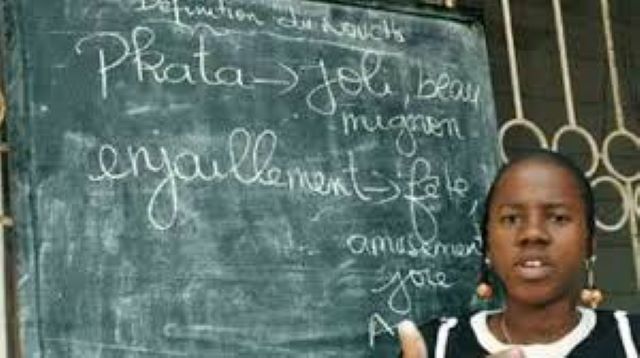 Définition du Nouchi
Pkata → joli, beau
mignon
enjaillement → fête,
amusement
joie
A